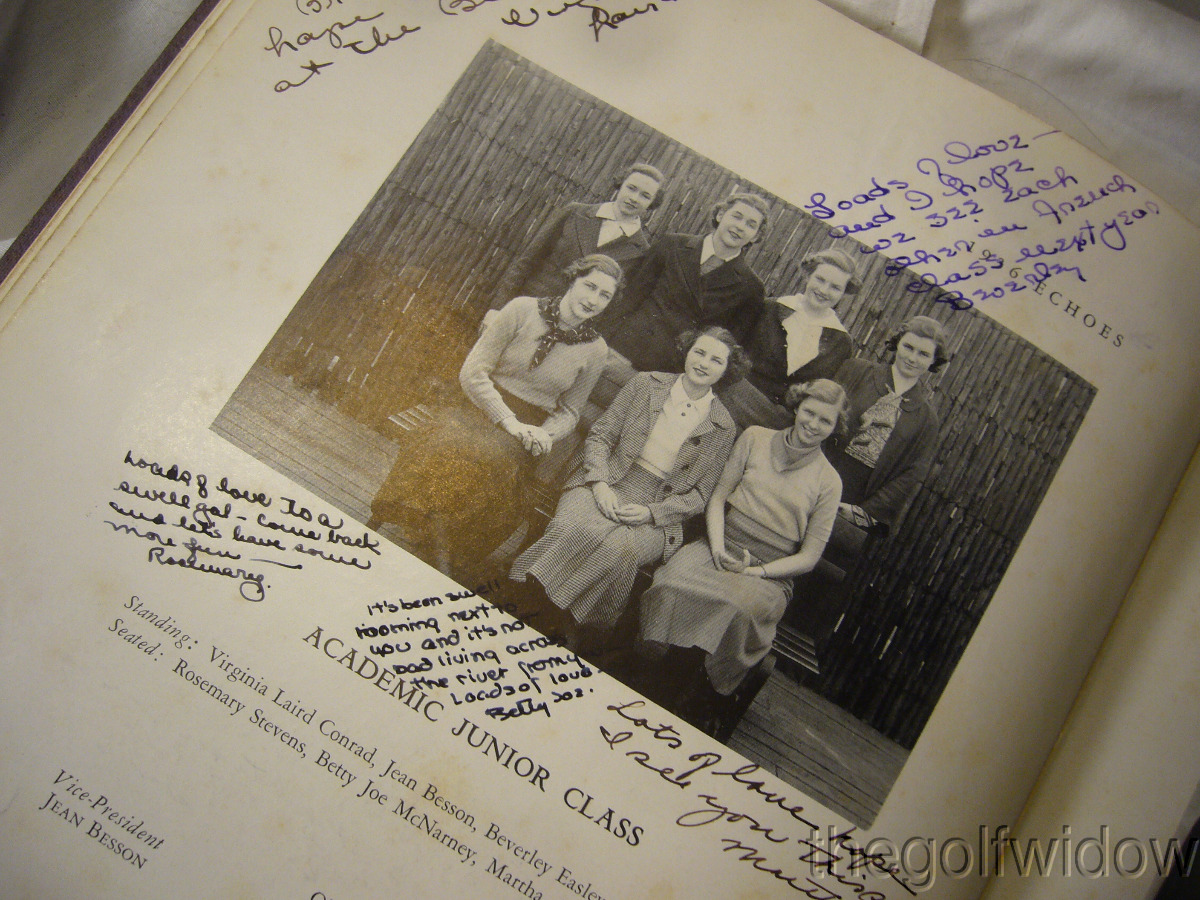 hope
at the
Loads of love —
and I hope
we see each
other in French
class next year
Beverley
ECHOES
Loads of love to a
swell gal - come back
and let's have some
more fun —
Rosemary.
It's been swell
rooming next to
you and it's not
bad living across
the river from y
Loads of love
Betty Joe.
Lots of love, hope
I see you this
ACADEMIC JUNIOR CLASS
Standing: Virginia Laird Conrad, Jean Besson, Beverley Easley
Seated: Rosemary Stevens, Betty Joe McNarney, Martha
Vice-President
JEAN BESSON
thegolfwidow